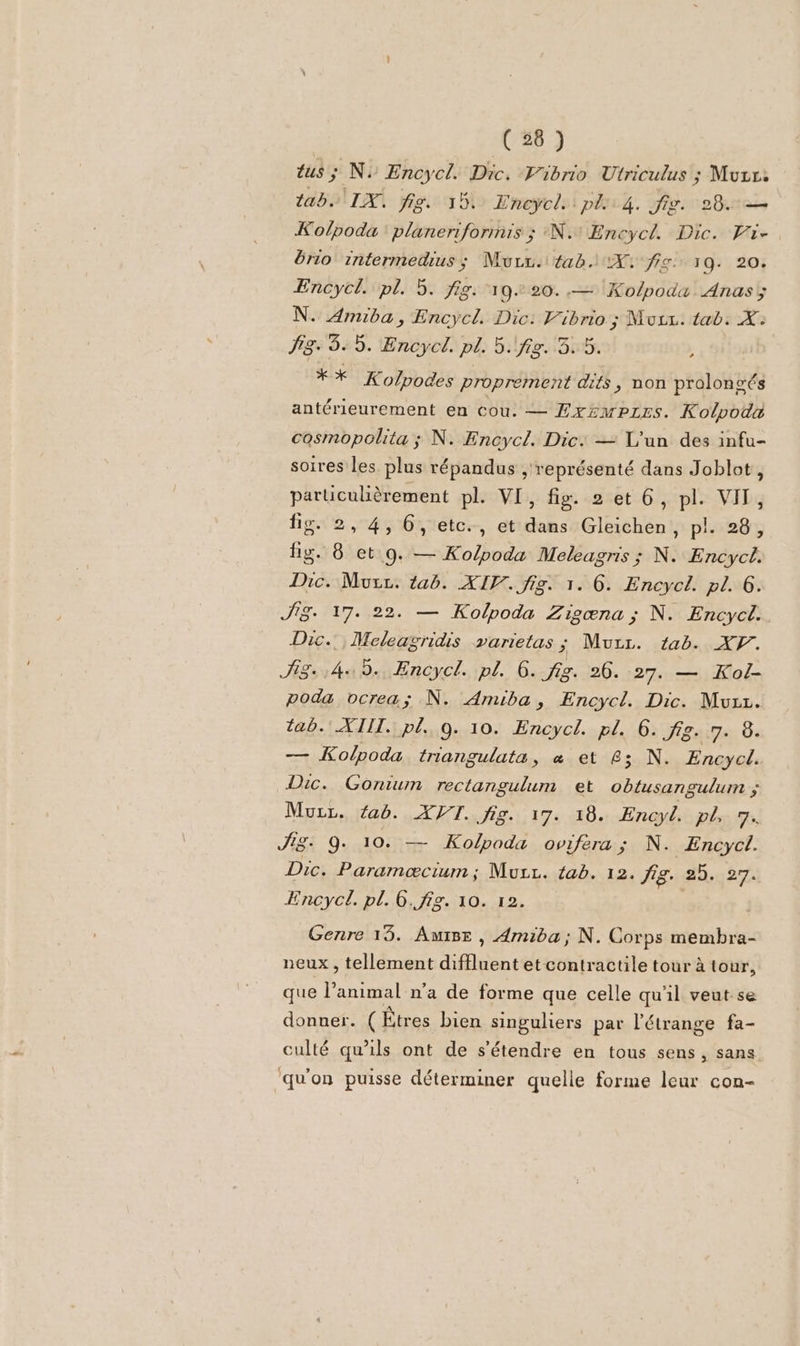 ( 28 )
tus ; N. Encycl. Dic. Vibrio Utriculus ; Mull.
tab. IX. fig. 15. Encycl. pl. 4. fig. 28. —
Kolpoda planeriformis ; N. Encycl. Dic. Vi-
brio intermedius ; Mull. tab. X. fig. 19. 20.
Encycl. pl. 5. fig. 19. 20. — Kolpoda Anas ;
N. Amiba, Encycl. Dic. Vibrio ; Mull. tab. X.
fig. 3. 5. Encycl. pl. 5. fig. 3. 5.
** Kolpodes proprement dits, non prolongés
antérieurement en cou. — Exemples. Kolpoda
cosmopolita ; N. Encycl. Dic. — L'un des infu-
soires les plus répandus, représenté dans Joblot,
particulièrement pl. VI, fig. 2 et 6, pl. VII,
fig. 2, 4, 6, etc., et dans Gleichen, pl. 28,
fig. 8 et 9. — Kolpoda Meleagris ; N. Encycl.
Dic. Mull. tab. XIV. fig. 1. 6. Encycl. pl. 6.
fig. 17. 22. — Kolpoda Zigœna ; N. Encycl.
Dic. Meleagridis varietas ; Mull. tab. XV.
fig. 4. 5. Encycl. pl. 6. fig. 26. 27. — Kol-
poda ocrea ; N. Amiba, Encycl. Dic. Mull.
tab. XIII. pl. 9. 10. Encycl. pl. 6. fig. 7. 8.
— Kolpoda triangulata, α et β ; N. Encycl.
Dic. Gonium rectangulum et obtusangulum ;
Mull. tab. XVI. fig. 17. 18. Encyl. pl. 7.
fig. 9. 10. — Kolpoda ovifera ; N. Encycl.
Dic. Paramœcium ; Mull. tab. 12. fig. 25. 27.
Encycl. pl. 6. fig. 10. 12.
Genre 13. Amibe, Amiba ; N. Corps membra-
neux, tellement diffluent et contractile tour à tour,
que l'animal n'a de forme que celle qu'il veut se
donner. ( Êtres bien singuliers par l'étrange fa-
culté qu'ils ont de s'étendre en tous sens, sans
qu'on puisse déterminer quelle forme leur con-